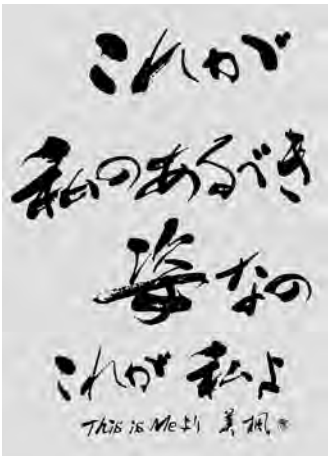 これが
私のあるべき
姿なの
これが 私よ
This is Meより 美楓